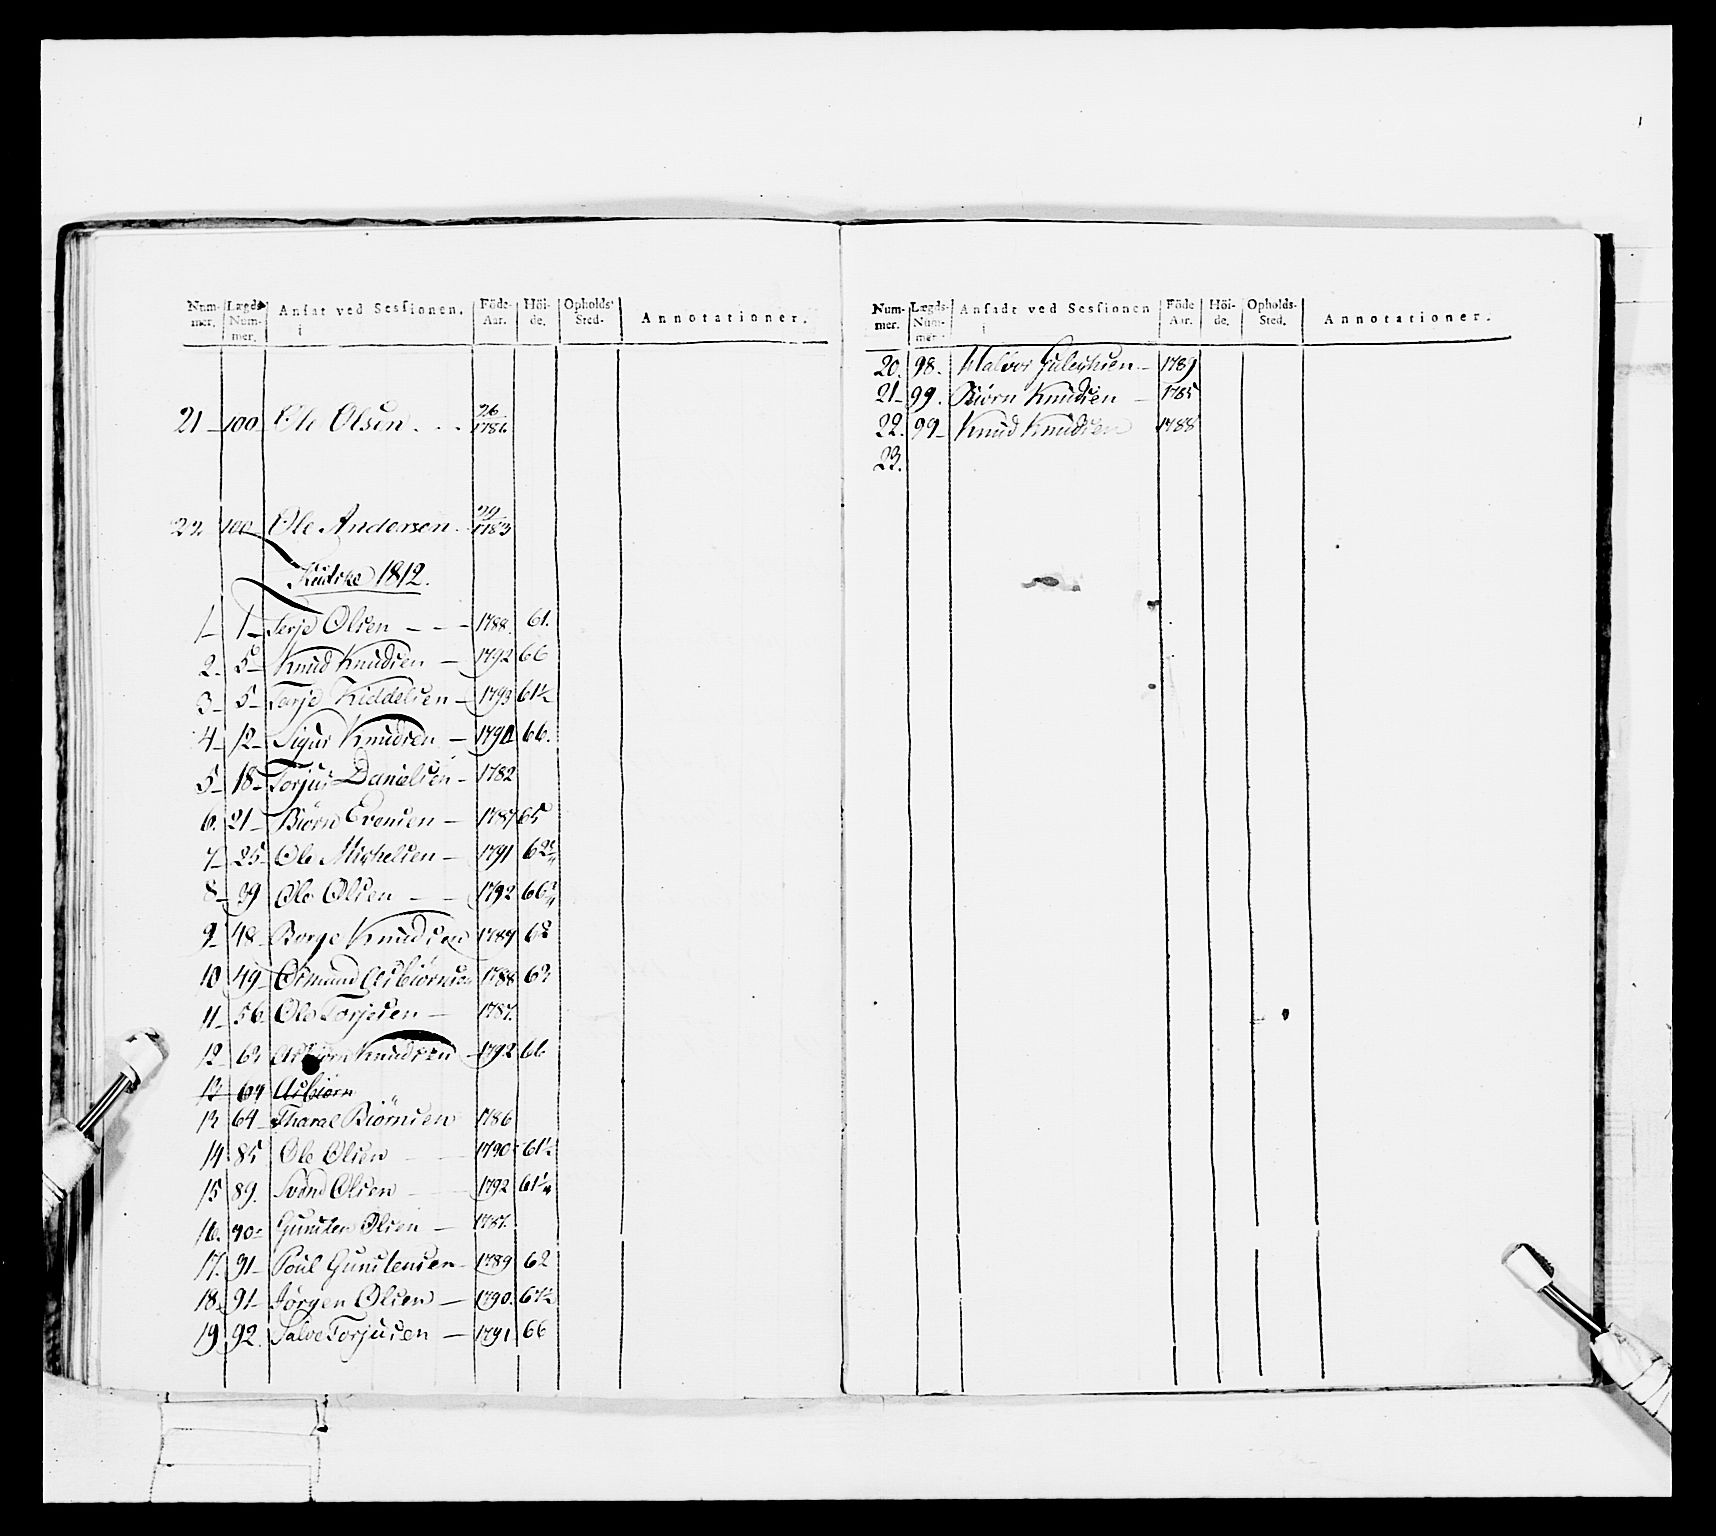 Num-mer. Lægds-Num-mer. Ansat ved Sessionen. Föde-Aar. Höi-de. Opholds-Sted. Annotationer.
21 100 Ole Olsen 26 1786
22. 100 Ole Andersen 29 1783
Kudske 1812.
1 1 Terje Olsen 1788. 61.
2. 5 Knud Knudsen 1792 66
3 5 Terje Kiddelsen 1793 61½
4 12 Sigur Knudsen 66.
5 18 Torjus Danielsen 1782
6. 21 Biörn Evensen 1787 65
7 25 Ole Michelsen 1791
8 39 Ole Olsen 1792
9 48 Borge Knudsen 62
10 49 Osmund Asbiörnsen 1788
11 56 Ole Torjesen 1787.
12 Asbiörn Knudsen 1792 66
13 64 Asbiörn
13 64 Tharal Biörnsen 1786
14 85 Ole Olsen 1790 61½
15 89. Svend Olsen 1792 61¼
16. 90 Gunsten Olsen 1787.
17. 91 Poul Gunstensen 1789 62
18. 91 Jörgen Olsen 1790.
19 92. Salve Torjusen 1791 66
Num-mer. Lægds-Num-mer. Ansadt ved Sessionen Föde Aar. Höi-de. Opholds-Sted. Annotationer.
20. 98. Halvor 1789
21 99. Biörn Knudsen 1785
22. 99 Knud Knudsen 1788
23.